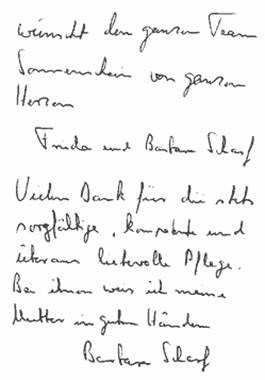 wünscht dem ganzen Team
Sonnenschein von ganzem
Herzen
Frieda und Barbara Scharf
Vielen Dank für die stets
sorgfältige, kompetente und
überaus liebevolle Pflege.
Bei ihnen war ich meine
Mutter in guten Händen
Barbara Scharf